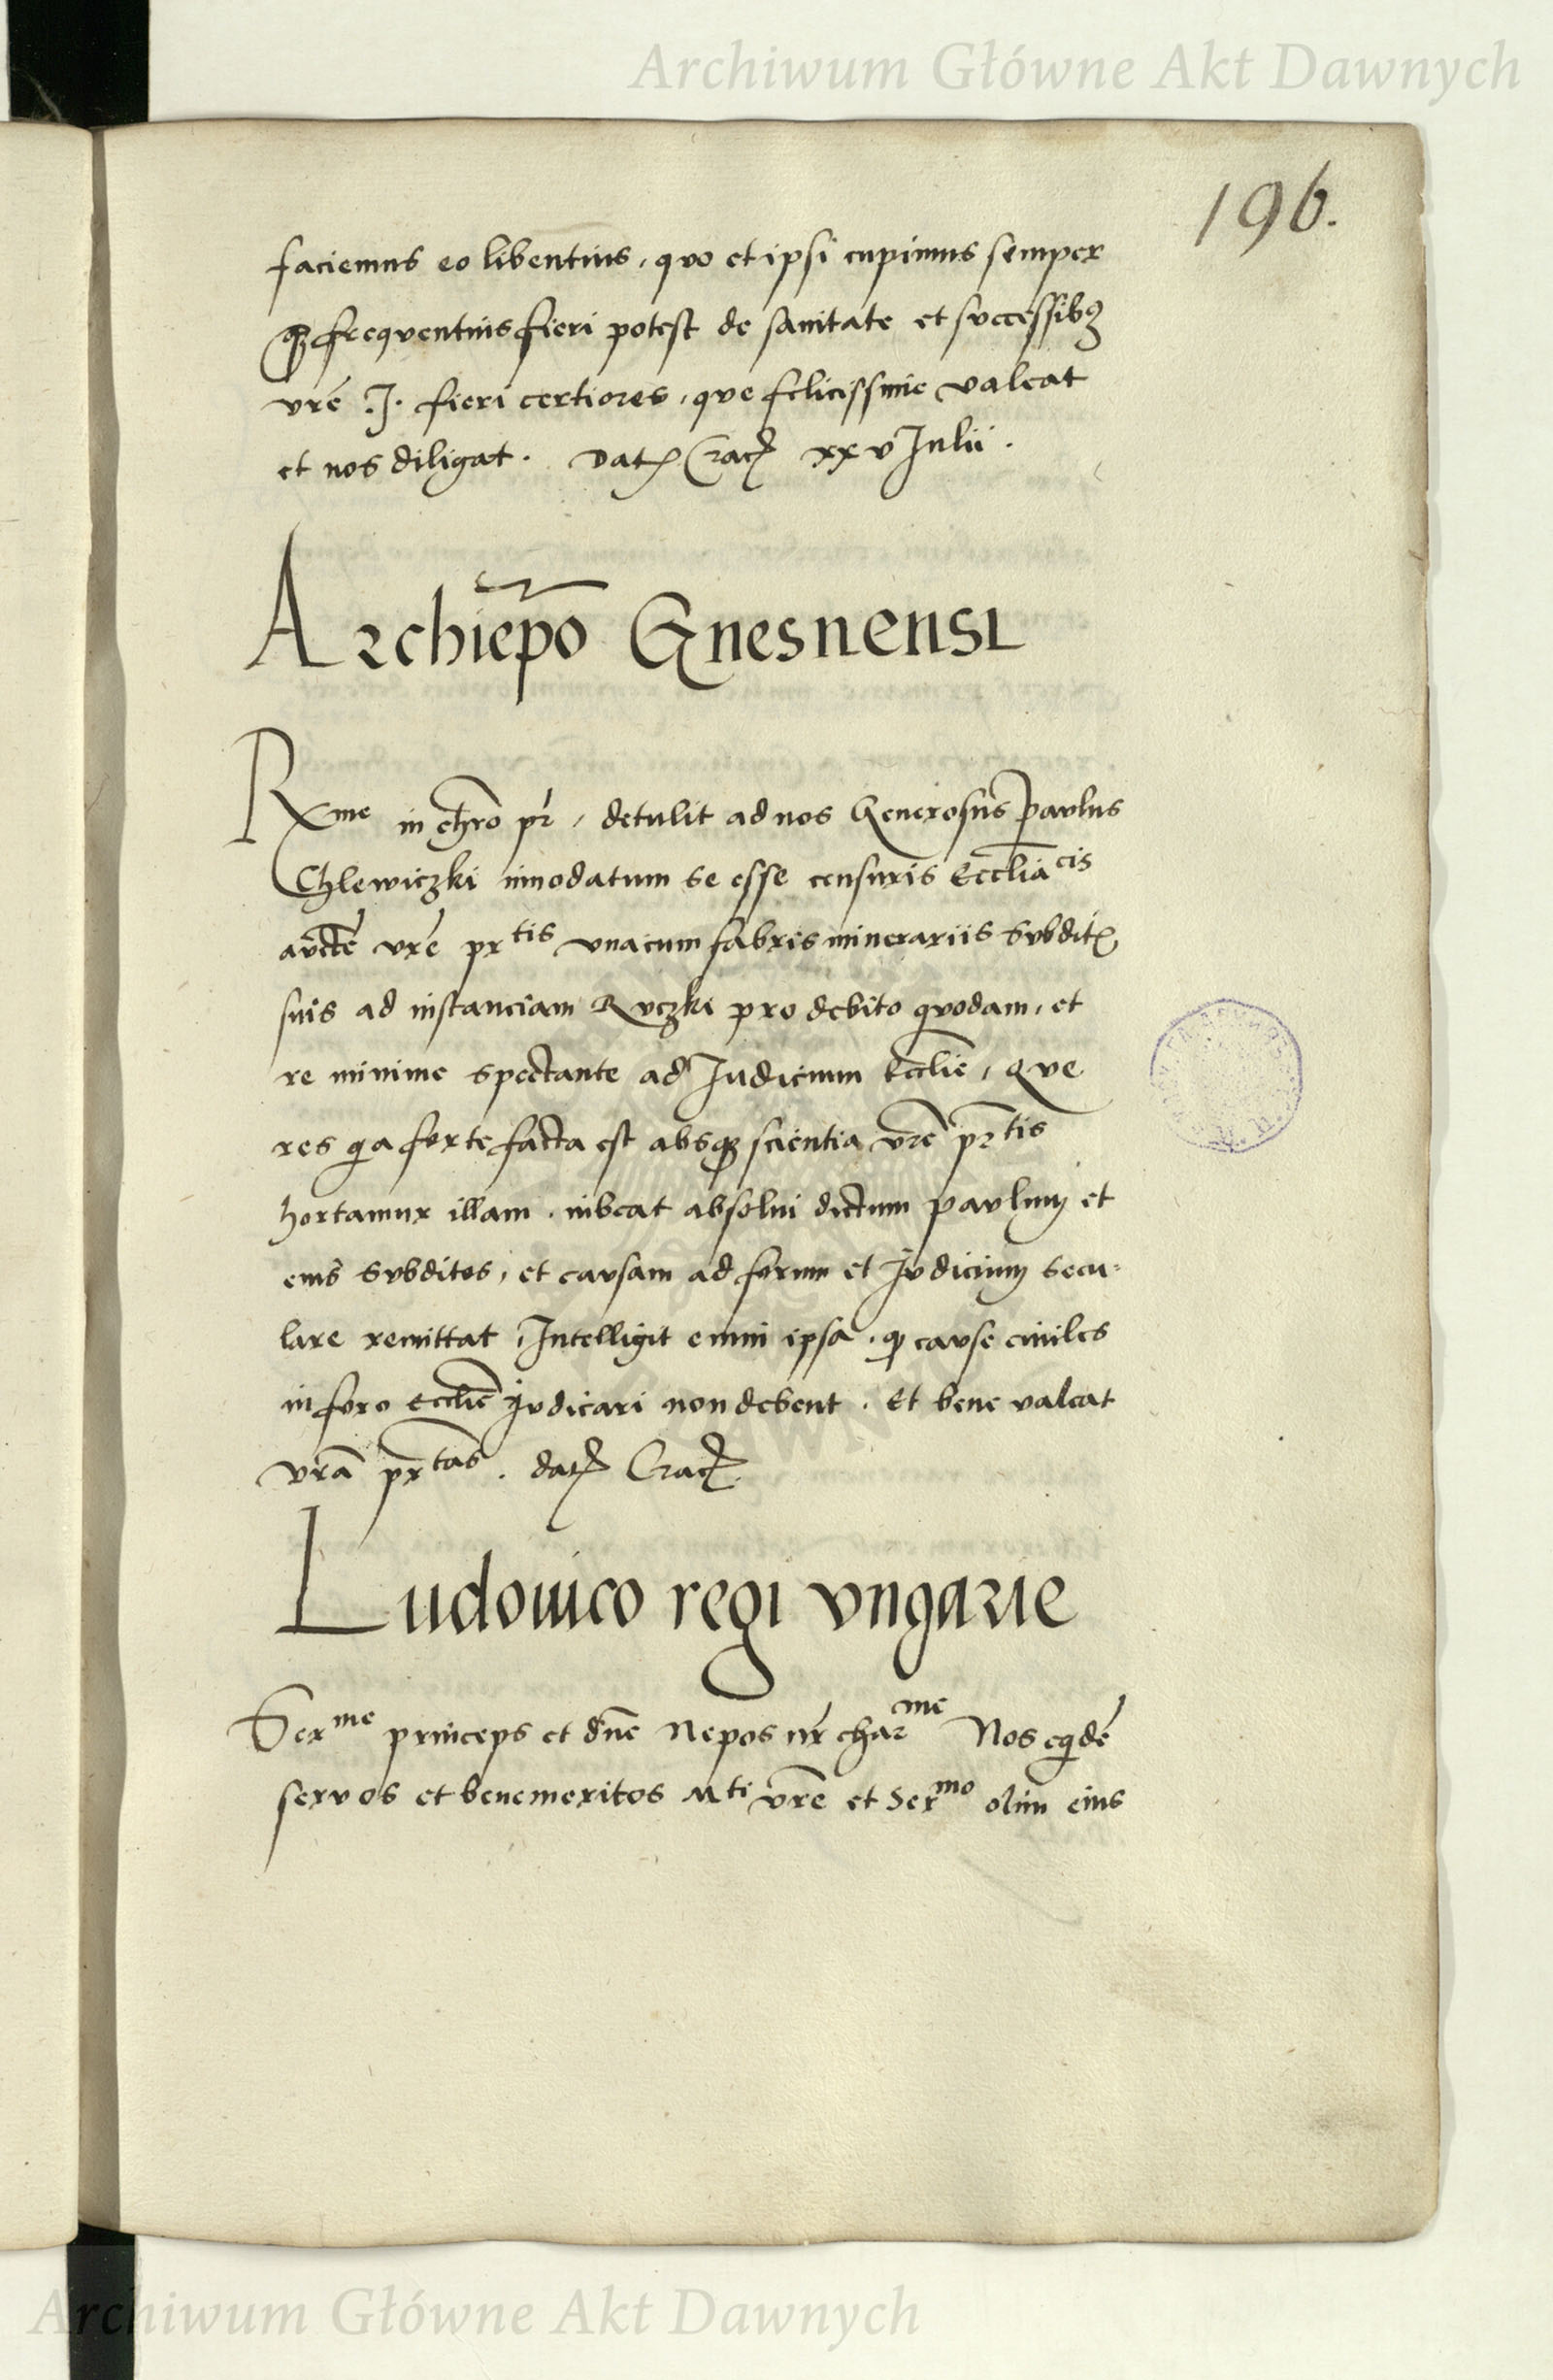 Archiwum Główne Akt Dawnych
196.
faciemus eo libentius, quo et ipsi cupimus semper
frequentius fieri potest de sanitate et successibꝫ
vrē .J. fieri certiores, que felicissime valeat
et nos diligat. Datꝭ Cracꝭ xxv Julii.
Archiepō Gnesnensi
Rxme in chro pr, detulit ad nos Generosus Pavlus
Chlewiczki innodatum se esse censuris Ecclīacis
avctē vrē prtis vnacum fabris minerariis svbditꝭ
suis ad instanciam Rvczki pro debito qvodam, et
re minime spectante ad Judicium Ecclīe, Qve
res qa forte facta est absqꝫ scientia vrē prtis
hortamur illam. iubeat absolui dictum pavlum et
eius svbditos, et cavsam ad forum et Jvdicium secu-
lare remittat, Intelligit enim ipsa. qꝫ cavse ciuiles
in foro Ecclīe Jvdicari non debent. Et bene valeat
vrā prtas. datꝭ Cracꝭ.
Ludouico regi vngarie
Serme princeps et dne Nepos nr charme Nos eqdē
servos et benemeritos Mti vrē et Sermo olim eius
Archiwum Główne Akt Dawnych